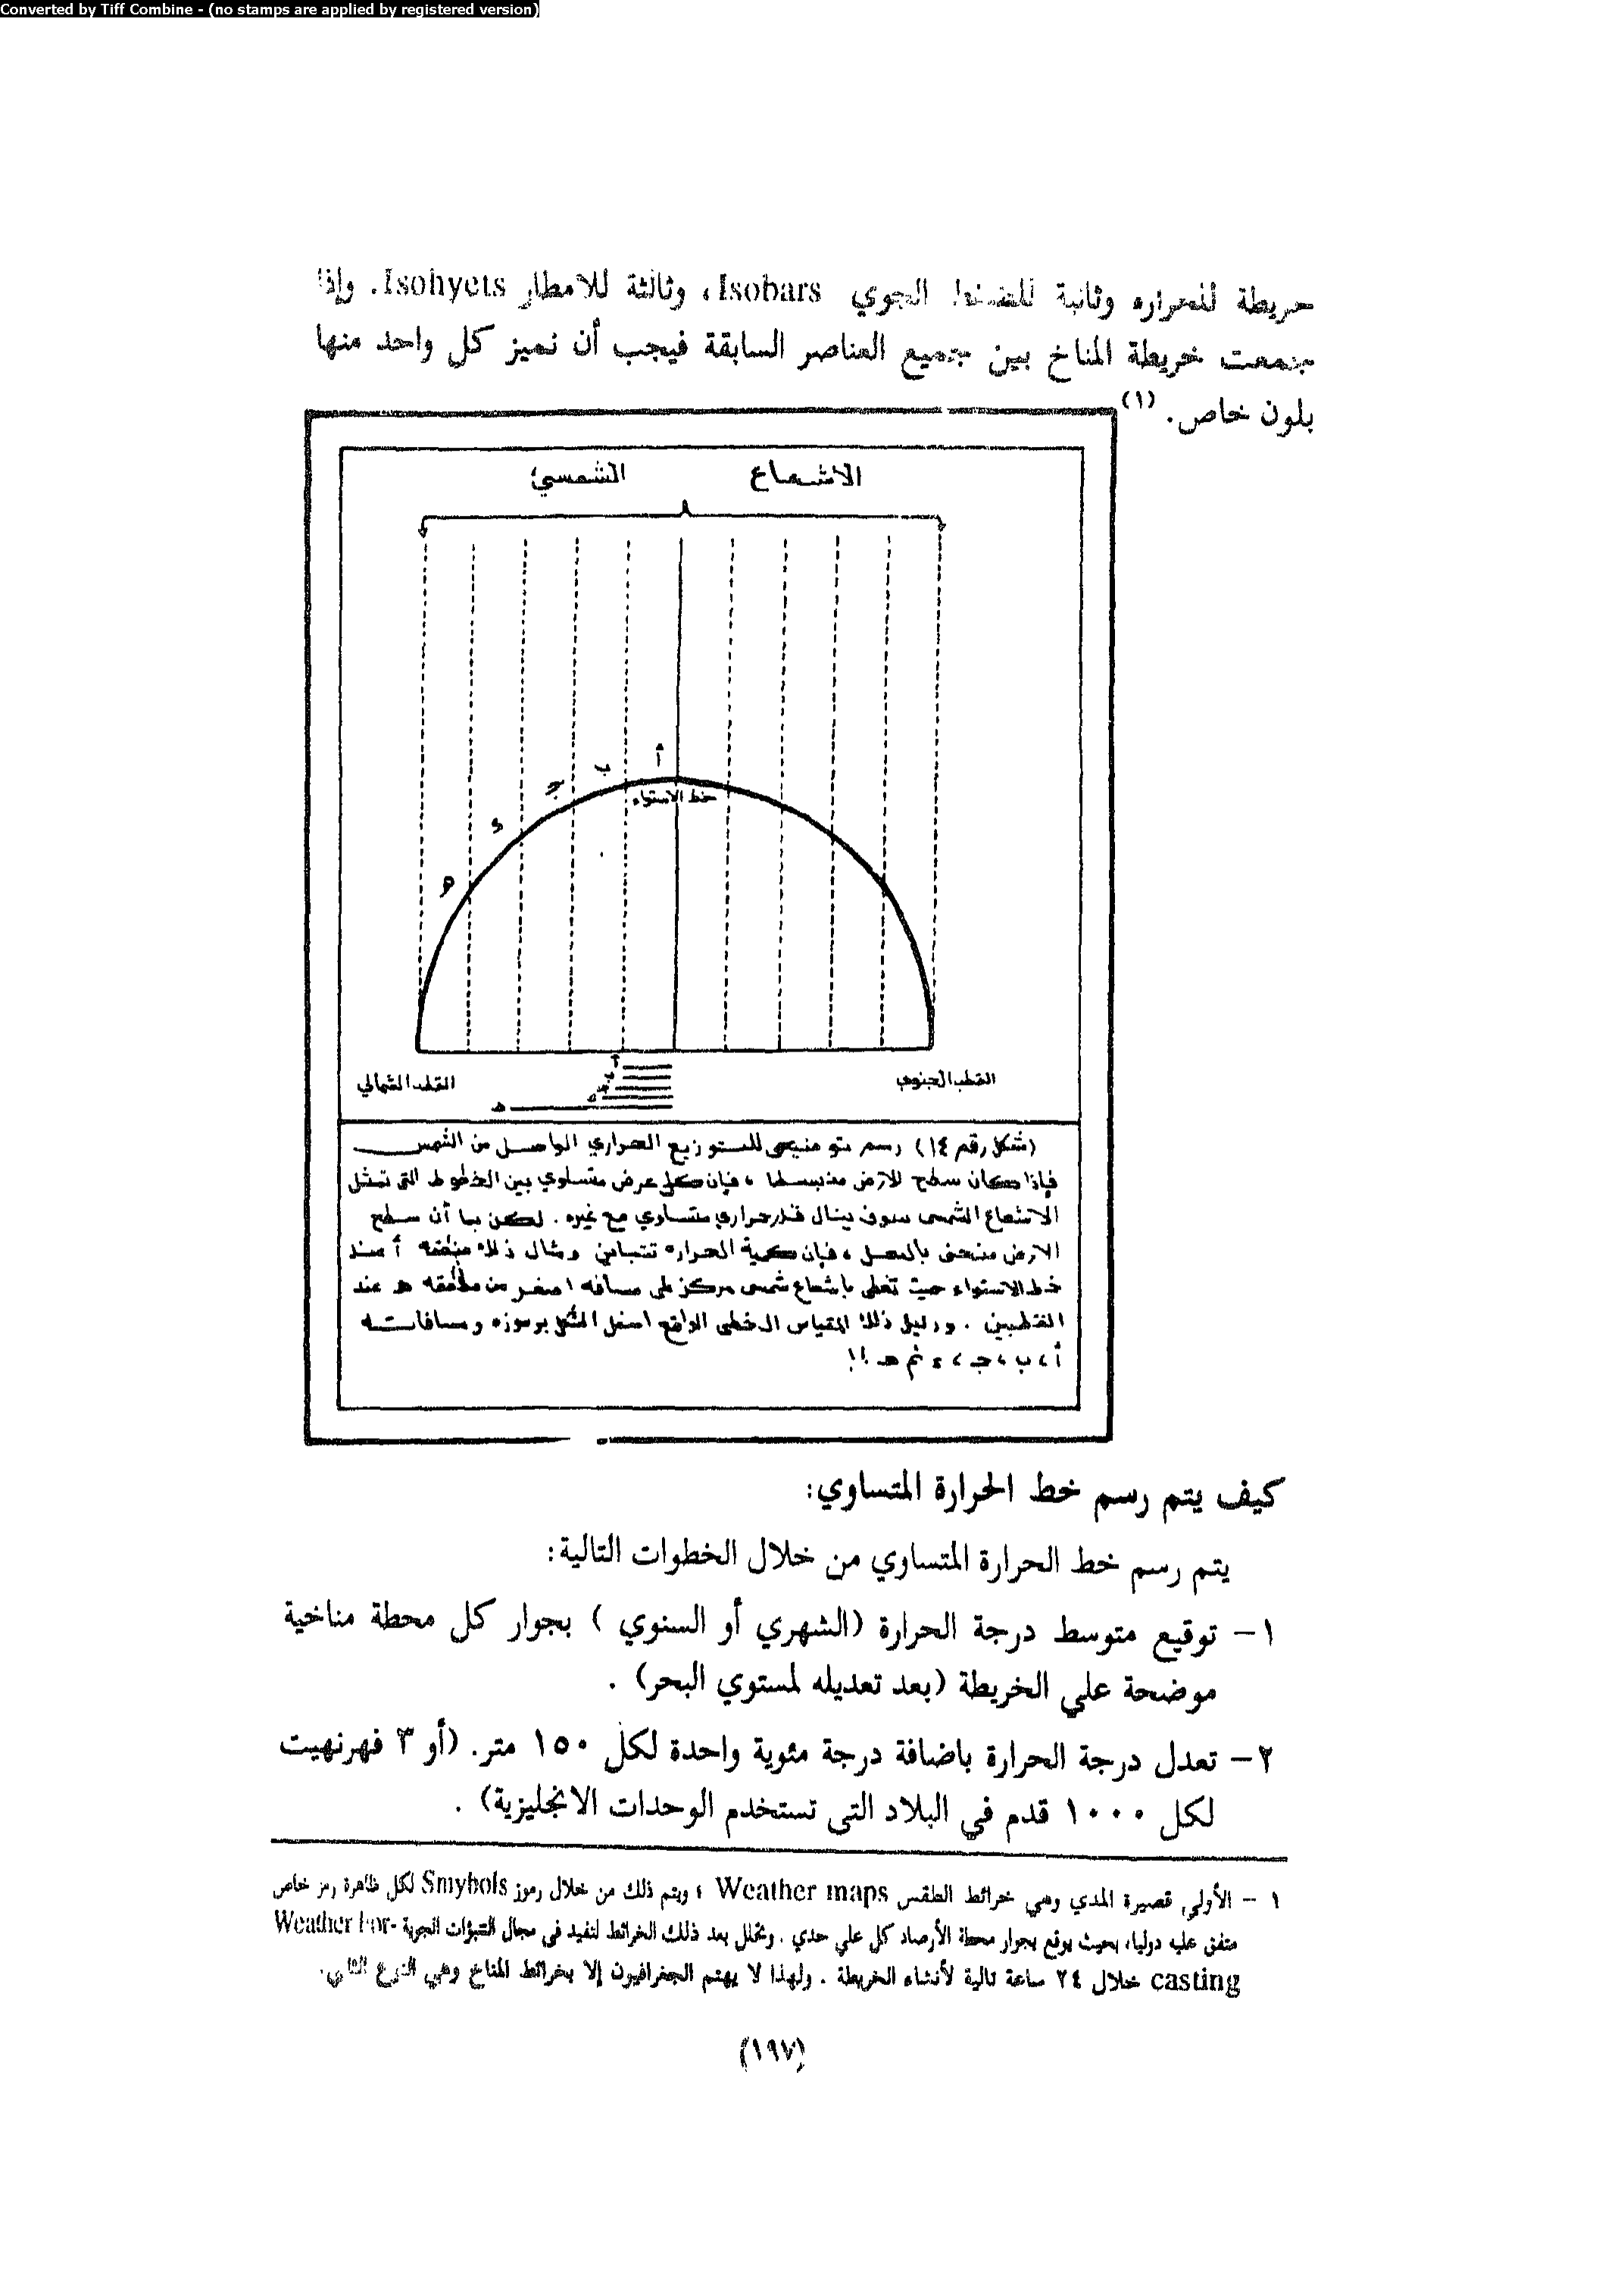 Converted by Tiff Combine - (no stamps are applied by registered version)
خريطة للحراره وثانية للضغط الجوي Isobars، وثالثة للامطار Isohyets. وإذا
جمعت خريطة المناخ بين جميع العناصر السابقة فيجب أن نميز كل واحد منها
بلون خاص. (١)
الاشعاع الشمسي
أ
ب
جـ
د
هـ
خط الاستواء
القطب الجنوبي
القطب الشمالي
أ
ب
جـ
د
هـ
(شكل رقم ١٤) رسم توضيحى للتوزيع الحراري الواصل من الشمس
فإذا كان سطح الارض منبسطا ، فإن كل عرض متساوي بين الخطوط التى تمثل
الاشعاع الشمسى سوف ينال قدر حراري متساوي مع غيره . لكن بما أن سطح
الارض منحنى بالفعل ، فإن كمية الحراره تتباين ومثال ذلك منطقه أ عند
خط الاستواء حيث تغطى باشعاع شمسى مركز على مسافه اصغر من منطقه هـ عند
القطبين . ودليل ذلك المقياس الخطى الواقع اسفل الشكل برموزه ومسافاتـه
أ ، ب ، جـ ، د ثم هـ !!
كيف يتم رسم خط الحرارة المتساوي:
يتم رسم خط الحرارة المتساوي من خلال الخطوات التالية:
١ – توقيع متوسط درجة الحرارة (الشهري أو السنوي ) بجوار كل محطة مناخية
موضحة علي الخريطة (بعد تعديله لمستوي البحر) .
٢ – تعدل درجة الحرارة باضافة درجة مئوية واحدة لكل ١٥٠ متر. (أو ٣ فهرنهيت
لكل ١٠٠٠ قدم في البلاد التى تستخدم الوحدات الانجليزية) .
١ – الأولي قصيرة المدي وهي خرائط الطقس Weather maps ؛ ويتم ذلك من خلال رموز Smybols لكل ظاهرة رمز خاص
متفق عليه دوليا، بحيث يوقع بجوار محطة الأرصاد كل علي حدي . وتحلل بعد ذلك الخرائط لتفيد فى مجال التنبؤات الجوية Weather For-
casting خلال ٢٤ ساعة تالية لأنشاء الخريطة . ولهذا لا يهتم الجغرافيون إلا بخرائط المناخ وهي النوع الثاني.
(١٩٧)